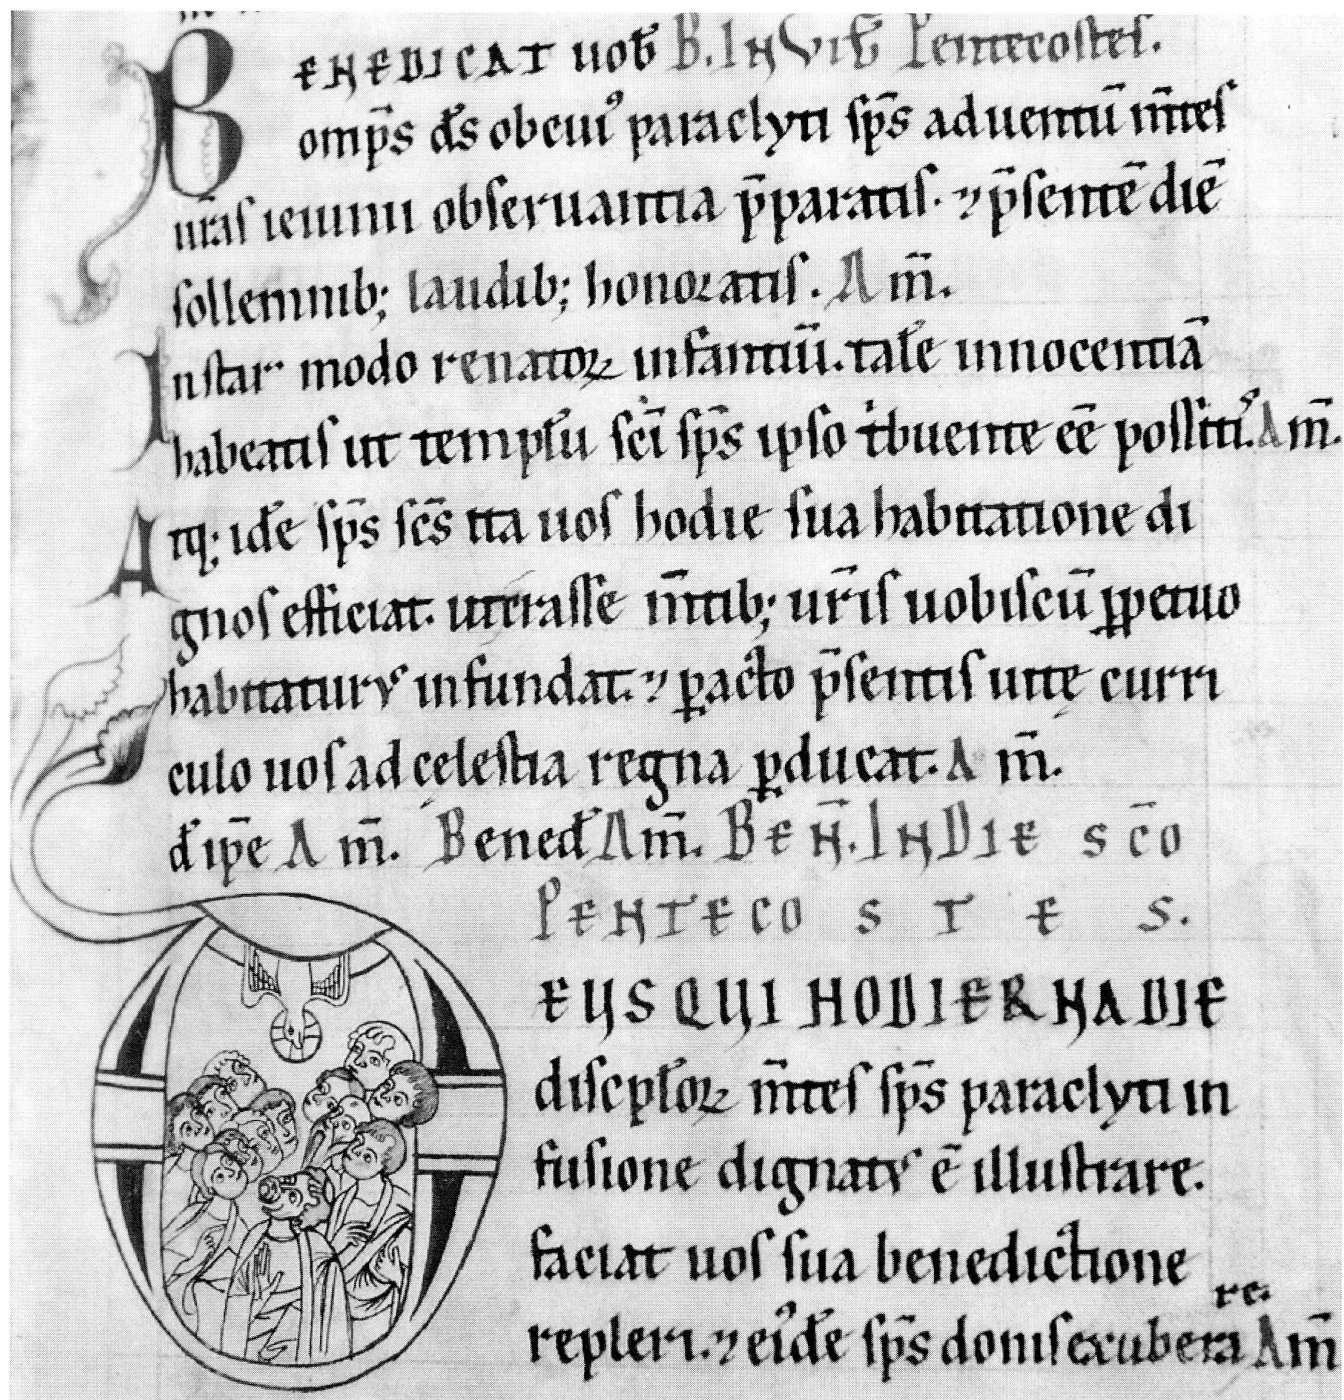 BENEDICAT uob̄ B. IN VIḠ Pentecostes.
omp̄s d̄s ob cui᾽ paraclyti sp̄s aduentū m̄tes
ur̄as ieiunii obseruantia p̄paratis. ⁊ p̄sentē diē
sollemnib; laudib; honoratis. Am̄.
Instar modo renatoꝝ infantiū. talē innocentiā
habeatis ut templ̄u sc̄i sp̄s ipso tͥbuente eē possitis᾽. Am̄.
Atq; idē sp̄s sc̄s ita uos hodie sua habitatione di
gnos efficiat. ut cras se m̄tib; ur̄is uobiscū ꝑpetuo
habitaturꝰ infundat. ⁊ ꝑacto p̄sentis uitę curri
culo uos ad cęlestia regna ꝑducat. Am̄.
Qd̄ ip̄e Am̄. Bened̄ Am̄. BEN̄. IN DIE SC̄O
PENTECOSTES.
DEUS QUI HODIERNA DIE
discipl̄oꝝ m̄tes sp̄s paraclyti in
fusione dignatꝰ ē illustrare.
faciat uos sua benedictione
repleri. ⁊ ei᾽dē sp̄s donis exubera
re. Am̄